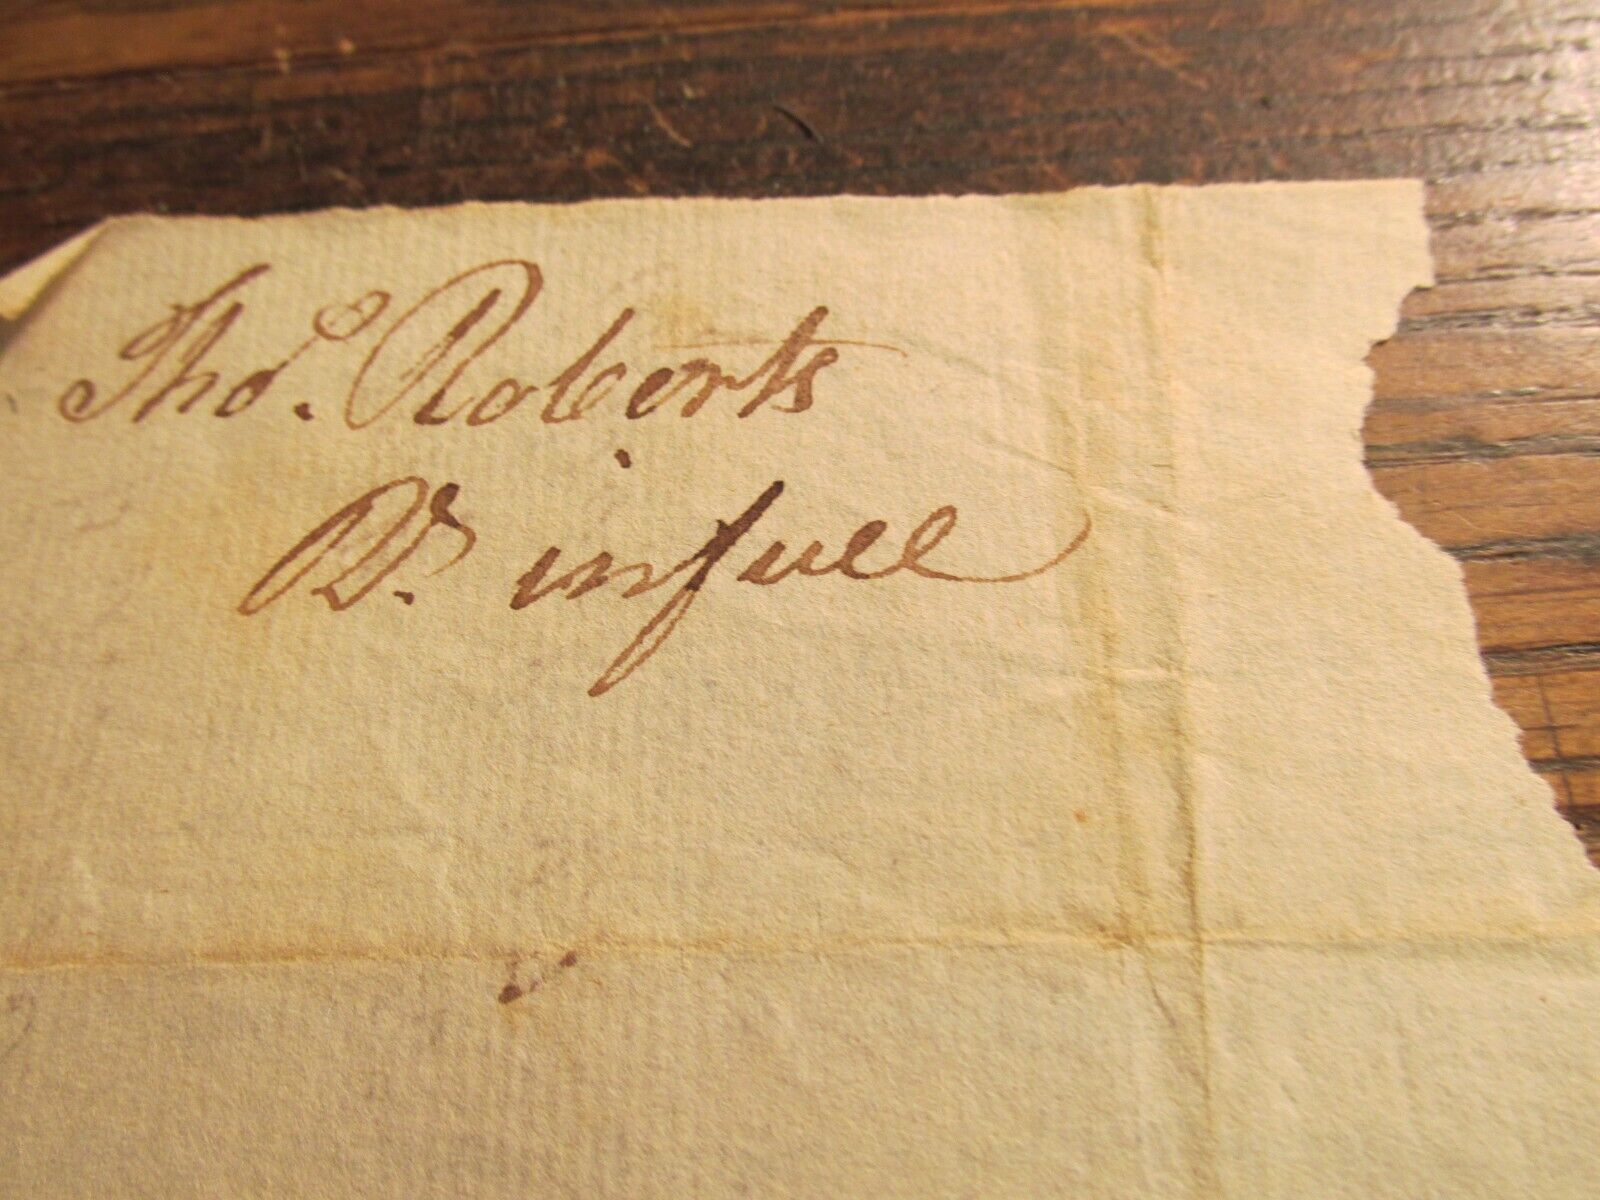 Thos. Roberts
Rt. in full